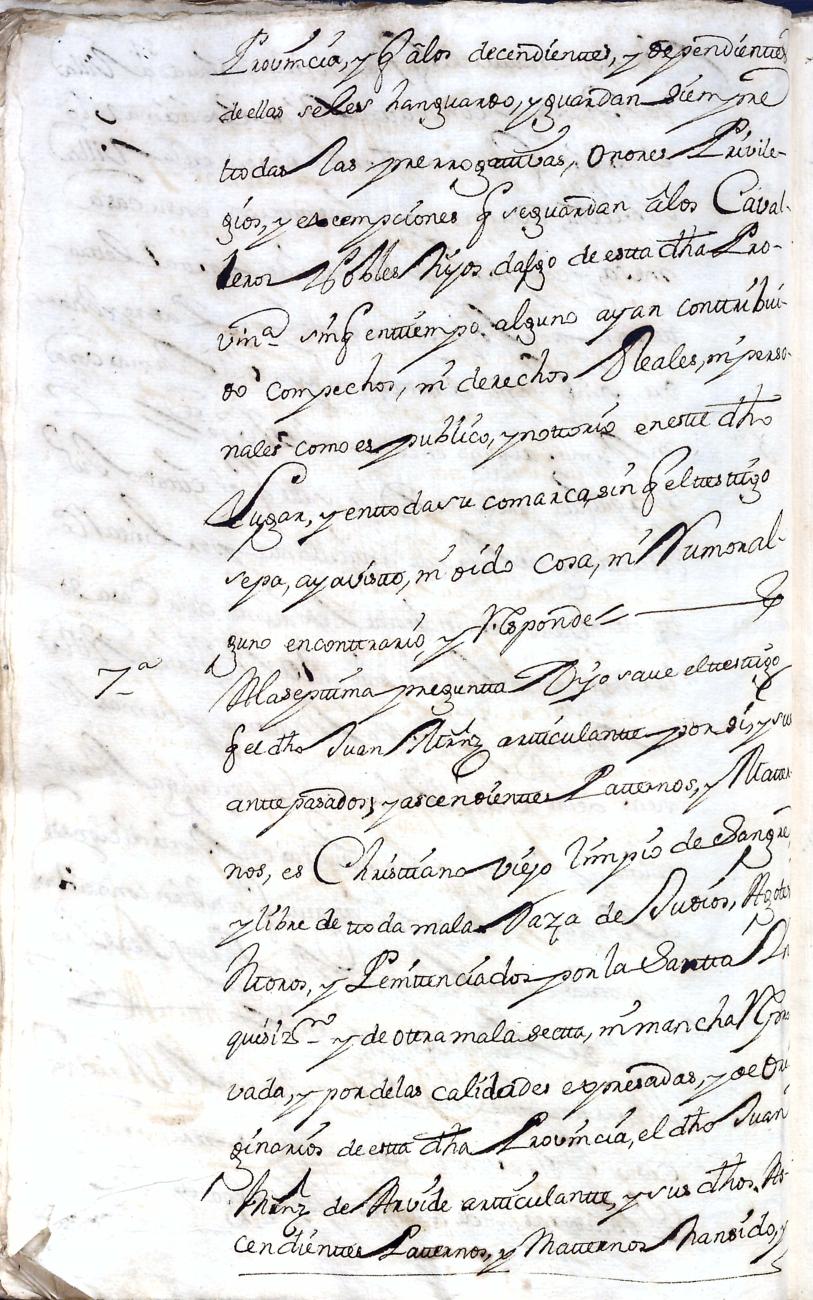 Provincia, y q̃ alos decendienttes, y dependienttes
de ellas seles hanguardo, yguardan siempre
ttodas las prerrogattivas, Onores Privile-
gios, y esempciones q̃ seguardan alos Caval-
leros Nobles hijos dalgo de estta dha Pro-
vinª sinq̃ enttiempo alguno ayan conttribui-
do compechos, ni derechos Reales, ni perso-
nales como es publico, ynottorio enestte dho
Lugar, y enttodasu comarca, sin q̃ elttesttigo
sepa, ayavistto, ni oido Cosa, ni Rumor al-
guno enconttrario, y Responde
7.ª Alaseptima preguntta Dijo save elttesttigo
q̃ el dho Juan Mrñz artticulantte por si, y sus
anttepasados, y ascendienttes Patternos, y Matter-
nos, es Christtiano viejo limpio de Sangre,
y libre de ttoda mala Raza de Judios, Agotes
Moros, y Penittenciados por la Santta In
quisizon y de ottra mala sectta, ni mancha Repro
vada, y por delas calidades expresadas, y de Ori
ginarios de estta dha Provincia, el dho Juan
Mrñz de Arvide artticulantte, y sus dhos As-
cendienttes Patternos, y Matternos hansido, y